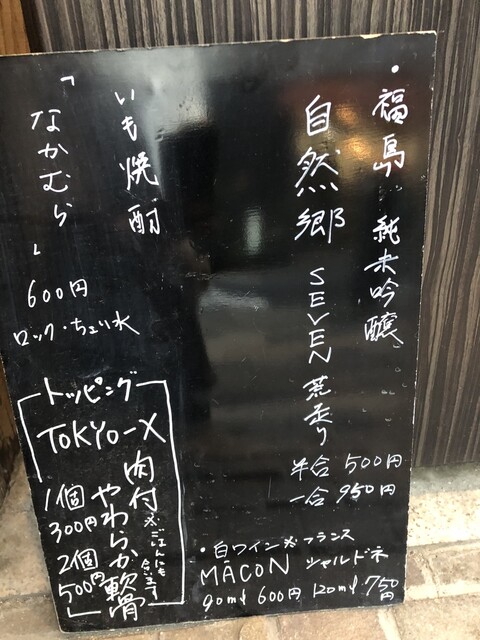 ・福島 純米吟醸
自然郷 SEVEN 荒走り
半合 500円
一合 950円
・白ワイン フランス
MÂCON シャルドネ
90ml 600円 120ml 750円
いも焼酎
「なかむら」
600円
ロック・ちょい水
トッピング
TOKYO-X
肉付
やわらか軟骨
※ごはんにも
合います
1個
300円
2個
500円